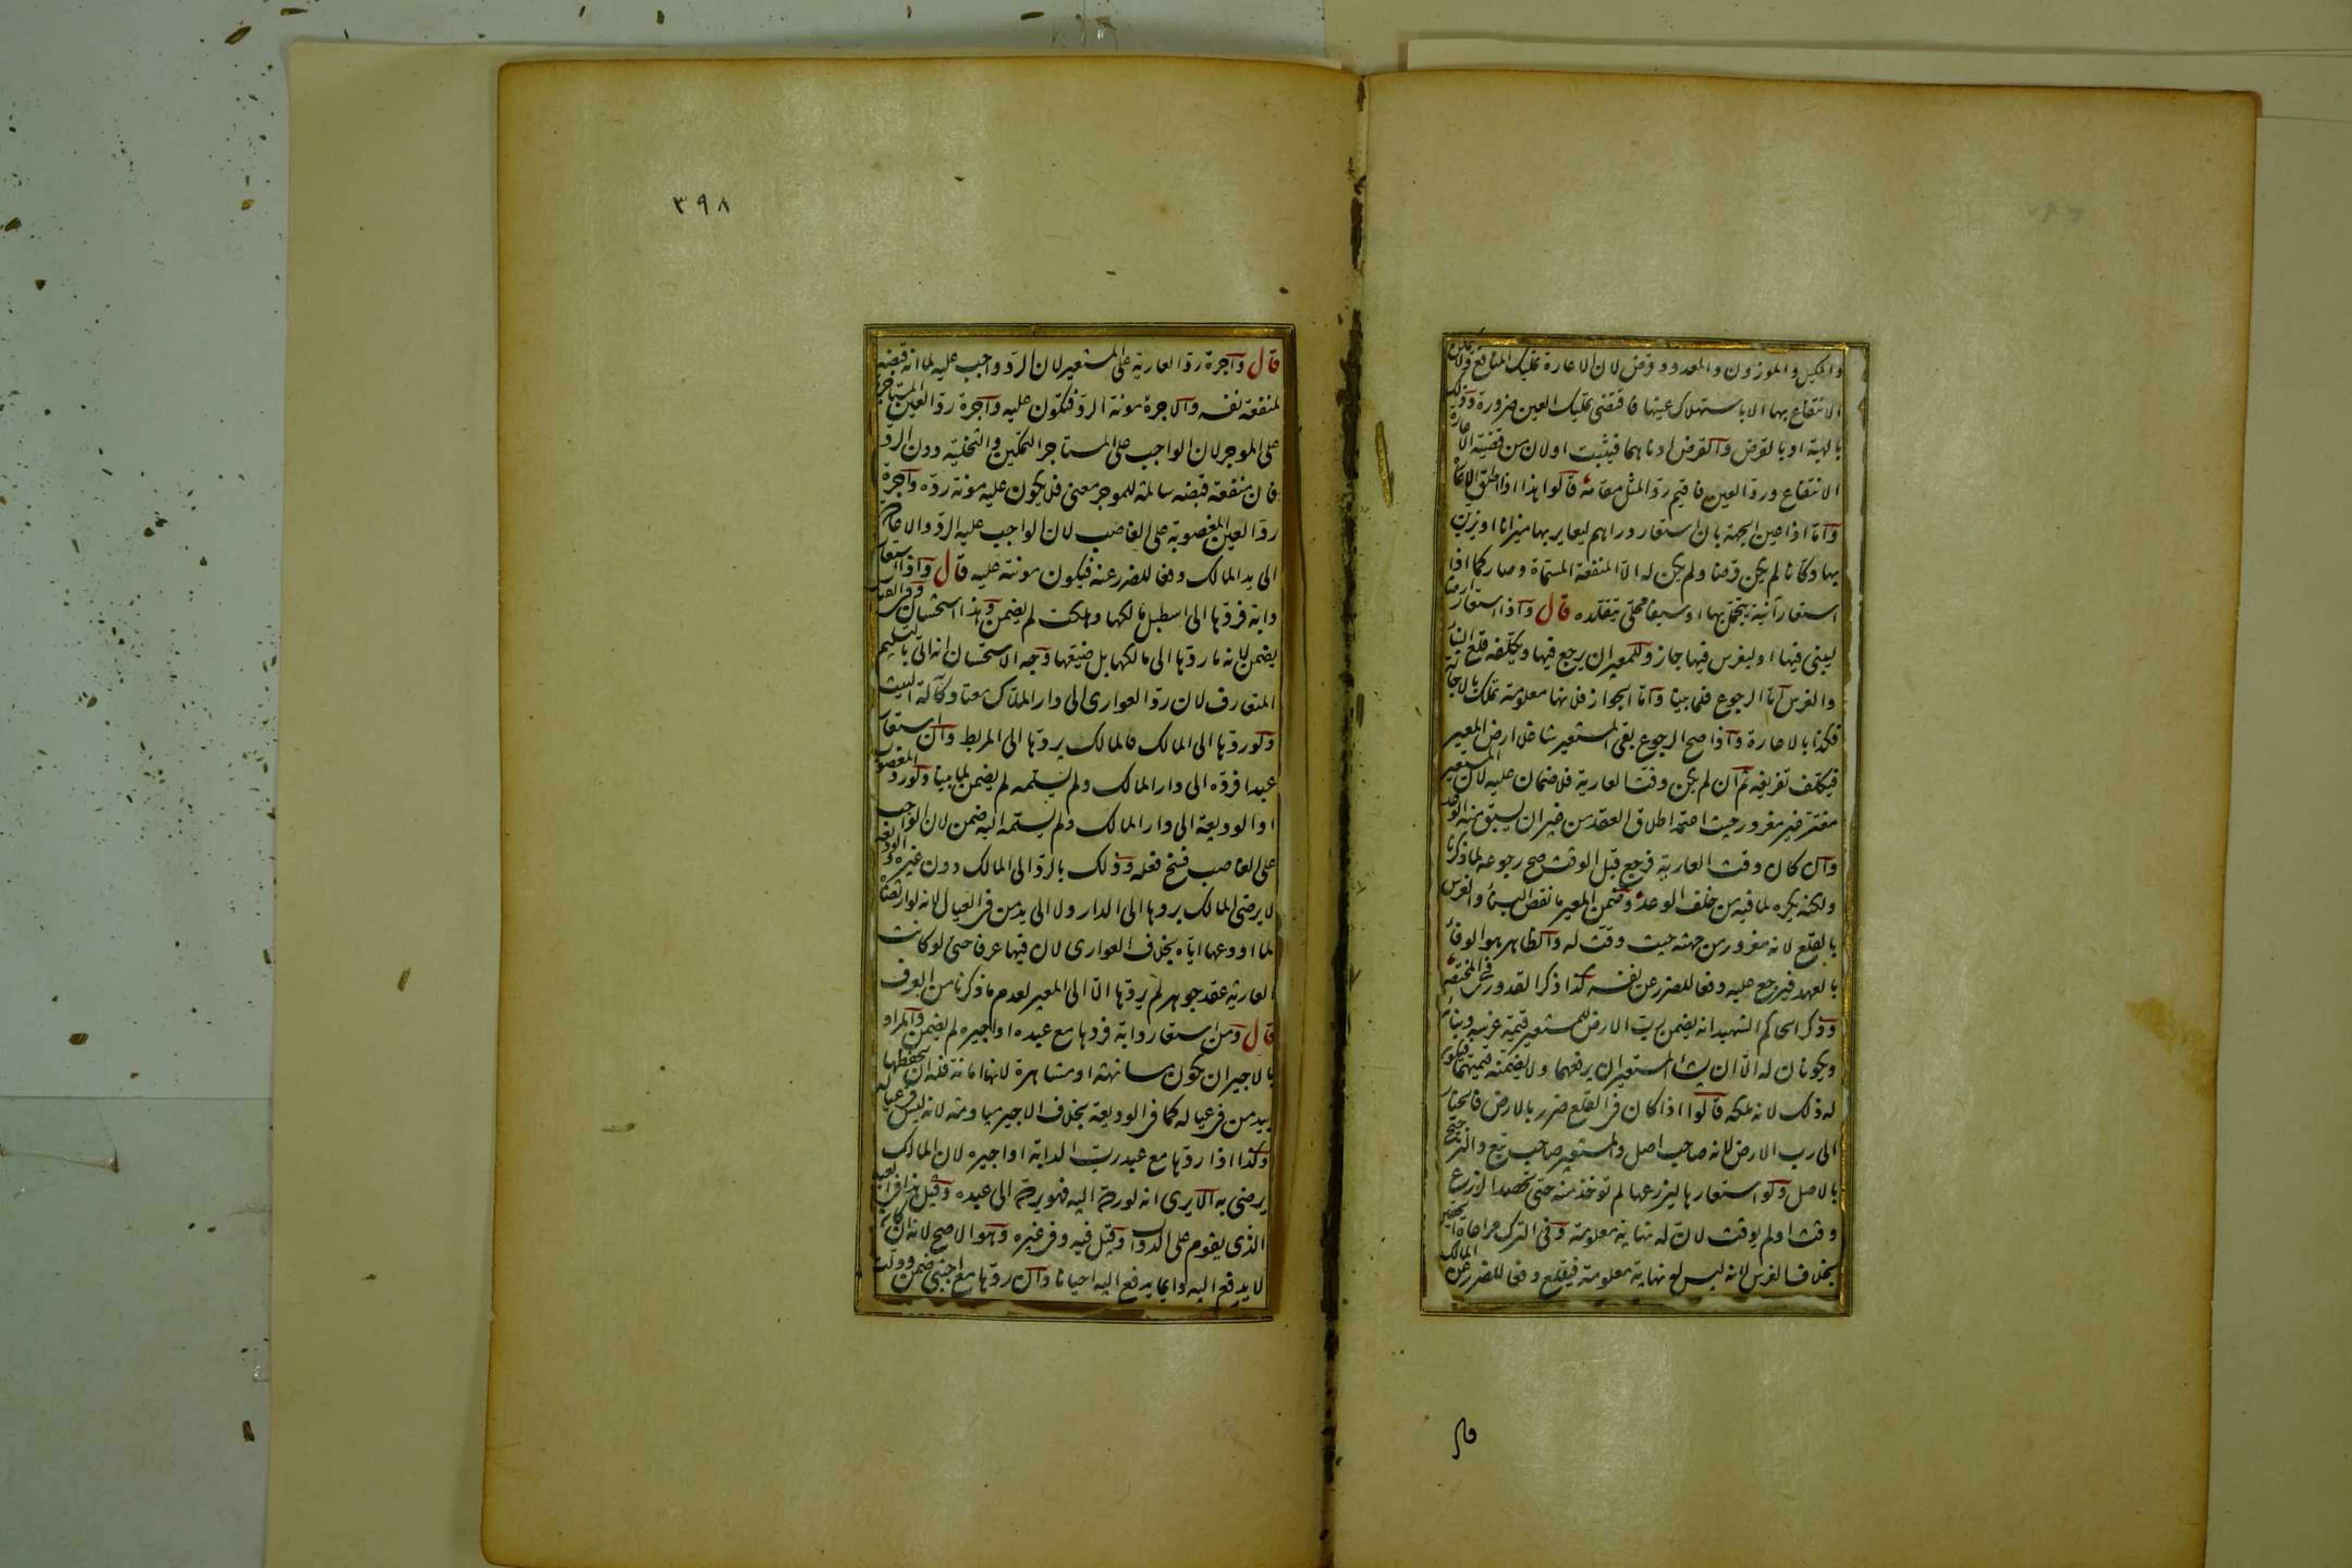 والمكيل والموزون والمعدود قرض لان الاعارة تمليك المنافع ولا يمكن
الانتفاع بها الا باستهلاك عينها فاقتضى تمليك العين ضرورة وذلك
بالهبة او بالقرض والقرض ادناهما فيثبت او لان من قضية الاعارة
الانتفاع ورد العين فاقيم رد المثل مقامه قالوا هذا اذا اطلق الاعارة
واما اذا عين الجهة بان استعار دراهم ليعاير بها ميزانا او يزين
بها دكانا لم يكن قرضا ولم يكن له الا المنفعة المسماة وصار كما اذا
استعار آنية يتجمل بها او سيفا محلى يتقلده قال واذا استعار ارضا
ليبنى فيها او ليغرس فيها جاز وللمعير ان يرجع فيها ويكلفه قلع البناء
والغرس اما الرجوع فلما بينا واما الجواز فلانها معلومة تملك بالاجارة
فكذا بالاعارة واذا صح الرجوع بقى المستعير شاغلا ارض المعير
فيكلف تفريغه ثم ان لم يكن وقت العارية فلا ضمان عليه لان المستعير
مغتر غير مغرور حيث اعتمد اطلاق العقد من غير ان يسبق منه الوعد
وان كان وقت العارية فرجع قبل الوقت صح رجوعه لما ذكرنا
ولكنه يكره لما فيه من خلف الوعد وضمن المعير ما نقص البناء والغرس
بالقلع لانه مغرور من جهته حيث وقت له والظاهر هو الوفاء
بالعهد فيرجع عليه دفعا للضرر عن نفسه كذا ذكر القدورى فى المختصر
وذكر الحاكم الشهيد انه يضمن رب الارض للمستعير قيمة غرسه وبنائه
ويكونان له الا ان يشاء المستعير ان يرفعهما ولا يضمنه قيمتهما فيكون
له ذلك لانه ملكه قالوا اذا كان فى القلع ضرر بالارض فالخيار
الى رب الارض لانه صاحب اصل والمستعير صاحب تبع والترجيح
بالاصل ولو استعارها ليزرعها لم توخذ منه حتى يحصد الزرع
وقت او لم يوقت لان له نهاية معلومة وفى الترك مراعاة الحقين
بخلاف الغرس لانه ليس له نهاية معلومة فيقلع دفعا للضرر عن المالك
قال
٣٩٨
قال واجرة رد العارية على المستعير لان الرد واجب عليه لما انه قبضه
لمنفعة نفسه والاجرة مونة الرد فتكون عليه واجرة رد العين المستاجرة
على الموجر لان الواجب على المستاجر التمكين والتخلية دون الرد
فان منفعة قبضه سالمة للموجر معنى فلا يكون عليه مونة رده واجرة
رد العين المغصوبة على الغاصب لان الواجب عليه الرد والاعادة
الى يد المالك دفعا للضرر عنه فيكون مونته عليه قال واذا استعار
دابة فردها الى اصطبل مالكها وهلكت لم يضمن وهذا استحسان وفى القياس
يضمن لانه ما ردها الى مالكها بل ضيعها وجه الاستحسان انه اتى بالتسليم
المتعارف لان رد العوارى الى دار الملاك معتاد كآلة البيت
ولو ردها الى المالك فالمالك يردها الى المربط وان استعار
عبدا فرده الى دار المالك ولم يسلمه لم يضمن لما بينا ولو رد المغصوب
او الوديعة الى دار المالك ولم يسلمه اليه ضمن لان الواجب
على الغاصب فسخ فعله وذلك بالرد الى المالك دون غيره والوديعة
لا يرضى المالك بردها الى الدار ولا الى يد من فى العيال لانه لو ارتضاه
لما اودعها اياه بخلاف العوارى لان فيها عرفا حتى لو كانت
العارية عقد جوهر لم يردها الا الى المعير لعدم ما ذكرنا من العرف
قال ومن استعار دابة فردها مع عبده او اجيره لم يضمن والمراد
بالاجير ان يكون مسانهة او مشاهرة لانها امانة فله ان يحفظها
بيد من فى عياله كما فى الوديعة بخلاف الاجير مياومة لانه ليس فى عياله
وكذا اذا ردها مع عبد رب الدابة او اجيره لان المالك
يرضى به الا يرى انه لو رده اليه فهو يرده الى عبده وقيل هذا فى العبد
الذى يقوم على الدواب وقيل فيه وفى غيره وهو الاصح لانه ان كان
لا يدفع اليه دائما يدفع اليه احيانا وان ردها مع اجنبى ضمن ودلت